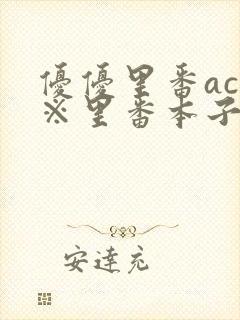 優優里番ac
※里番本子
安達充